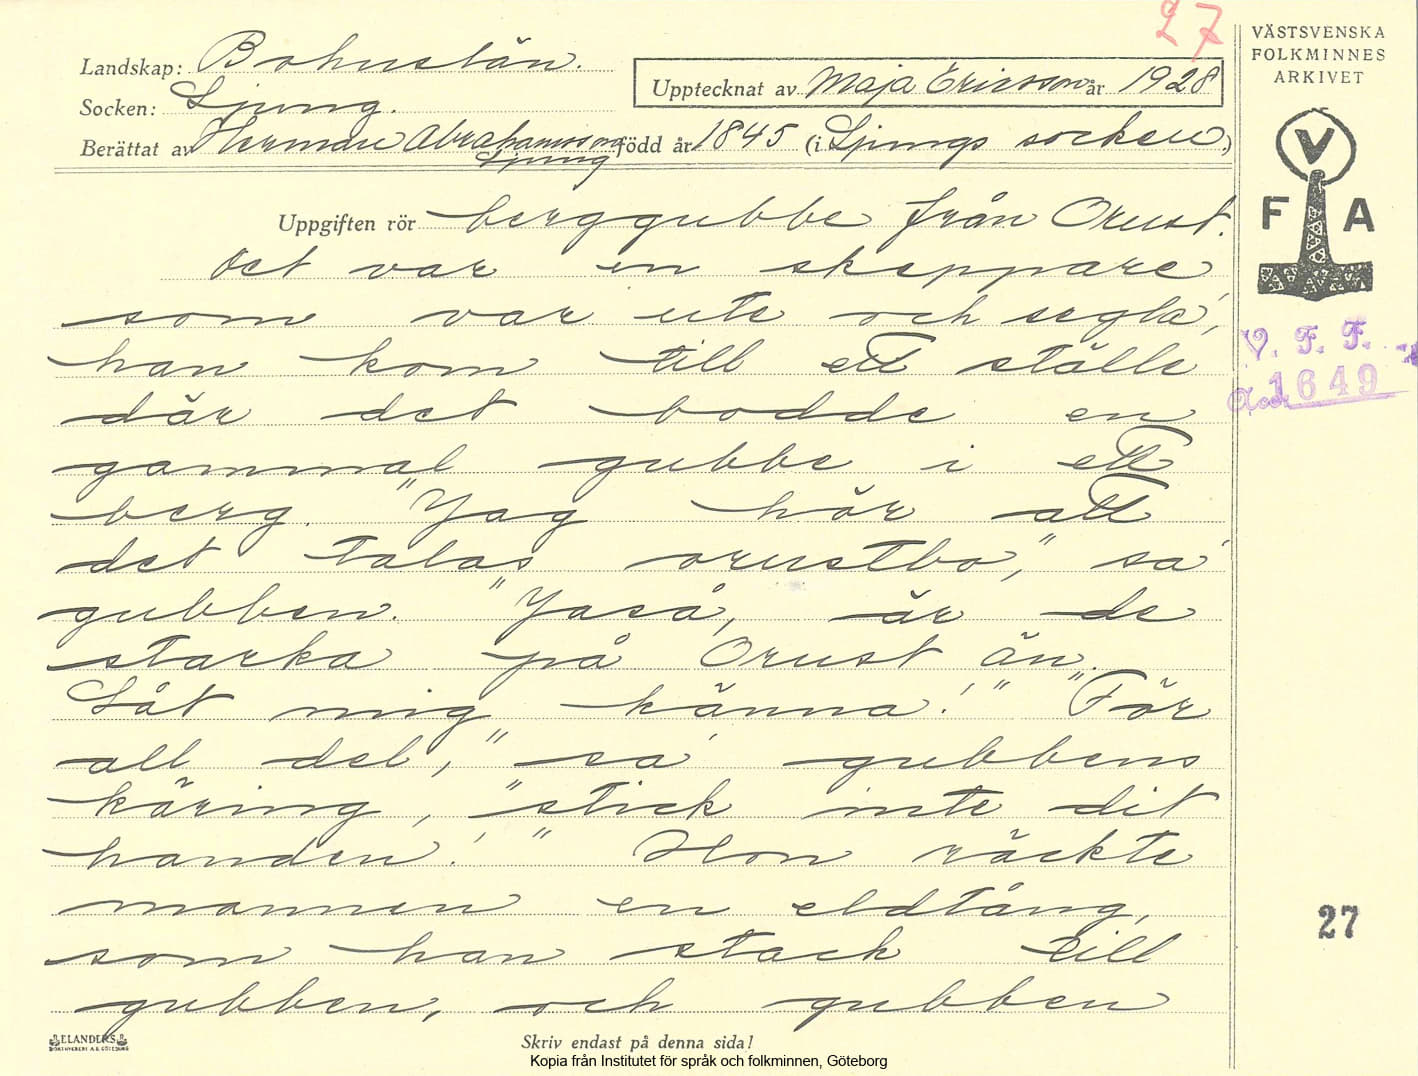 27
Landskap: Bohuslän.
Socken: Ljung.
Berättat av Herman Abrahamsson född år 1845 (i Ljungs socken)
Ljung
Upptecknat av Maja Ericsson år 1928
Uppgiften rör berggubbe från Orust.
Det var en skeppare
som var ute och segla',
han kom till ett ställe
där det bodde en
gammal gubbe i ett
berg. "Jag hör att
det talas orustbo", sa'
gubben. "Jaså, är de
starka på Orust än.
Låt mig känna!" "För
all del", sa' gubbens
käring, "stick inte dit
handen!" Hon räckte
mannen en eldtång,
som han stack till
gubben, och gubben
ELANDERS
BOKTRYCKERI A.B. GÖTEBORG
Skriv endast på denna sida!
Kopia från Institutet för språk och folkminnen, Göteborg
VÄSTSVENSKA
FOLKMINNES
ARKIVET
V
F A
V. F. F.
Acc. 1649
27